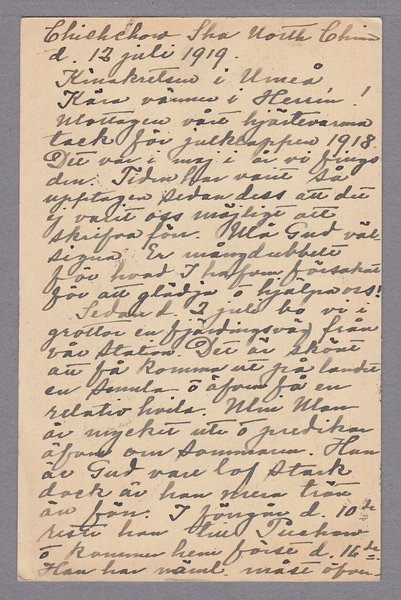 Chiehchow Sha North China
d. 12 juli 1919.
Kinakretsen i Umeå
Kära vänner i Herrn!
Mottagen vårt hjärtevarma
tack för julklappen 1918.
Det var i maj i år vi fingo
den. Tiden har varit så
upptagen sedan dess att det
ej varit oss möjligt att
skrifva förr. Må Gud väl-
signa Er mångdubbelt
för hvad I hafven försakat
för att glädja o hjälpa oss!
Sedan d. 3 juli bo vi i
grottor en fjärdingsväg från
vår station. Det är skönt
att få komma ut på landet
en smula o äfven få en
relativ hvila. Min Man
är mycket ute o predikar
äfven om sommaren. Han
är Gud vare lof stark
dock är han mera trött
än förr. I förrgår d. 10de
reste han till Puchow
o kommer hem först d. 16de.
Han har näml. måst öfver-